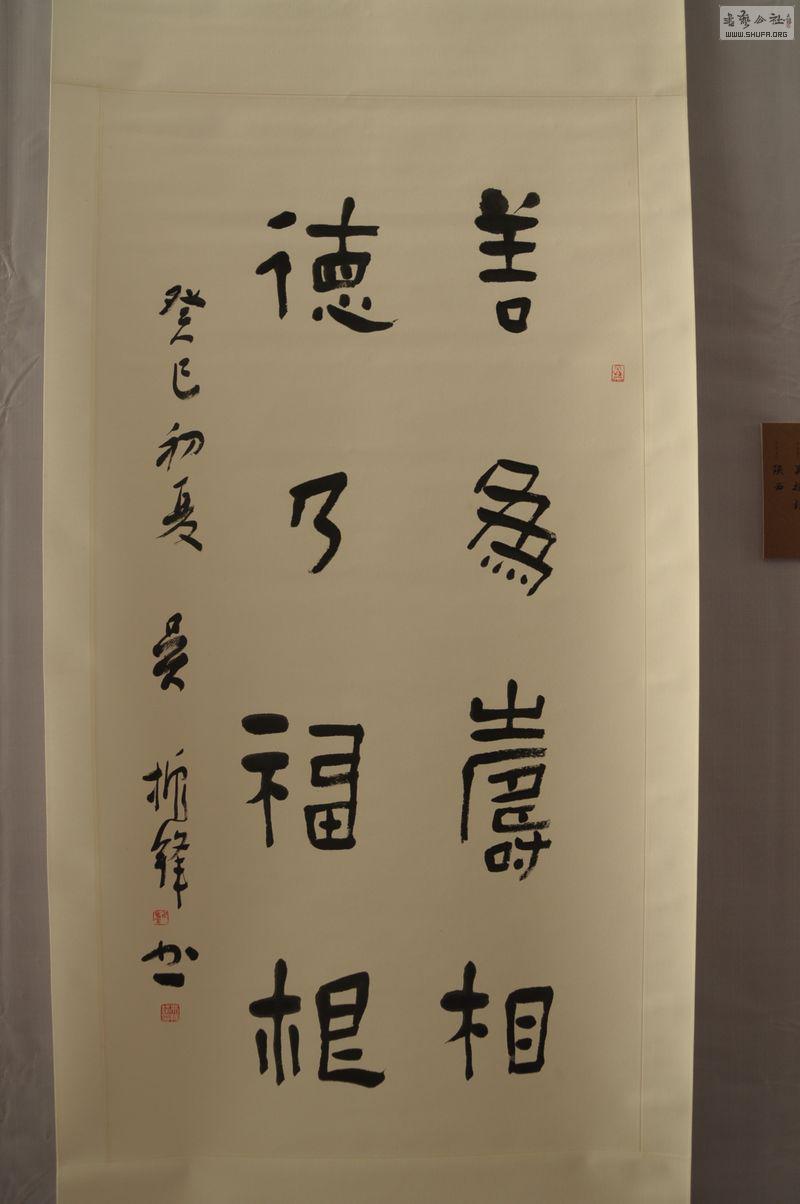 善為壽相
德乃福根
癸巳初夏 吴振鋒书
陕西
書藝公社
WWW.SHUFA.ORG